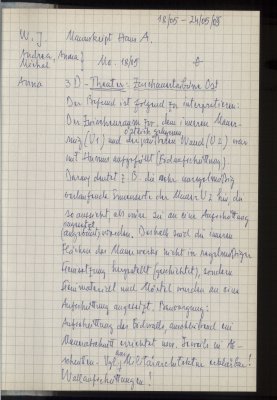 18/05 – 24/05/08
W. J. Manuskript Hans A.
Andrea, Anna,
Michal Mo. 18/05
Anna 3D - Theater - Zuschauertribüne Ost
Der Befund ist folgend zu interpretieren:
Der Zwischenraum zw. dem inneren Mauer-
optisch jüngeren
zug (V1) und der äußeren Wand (V2) war
mit Humus aufgefüllt (Erdaufschüttung).
Darauf deutet z.B. die sehr unregelmäßig
verlaufende Innenseite der Mauer V2 hin, die
so aussieht, als wäre sie an eine Aufschüttung
angesetzt
worden. Deshalb sind die inneren
Flächen des Mauerwerks nicht in regelmäßiger
hergestellt (geschichtet), sondern
Steinmaterial und Mörtel wurden an eine
Aufschüttung angesetzt.
Aufschüttung des Erdwalls, anschließend ein
Mauerabschnitt errichtet usw. Jeweils in Ab-
schnitten. Vgl. Militärarchitektur
Wallaufschüttungen!